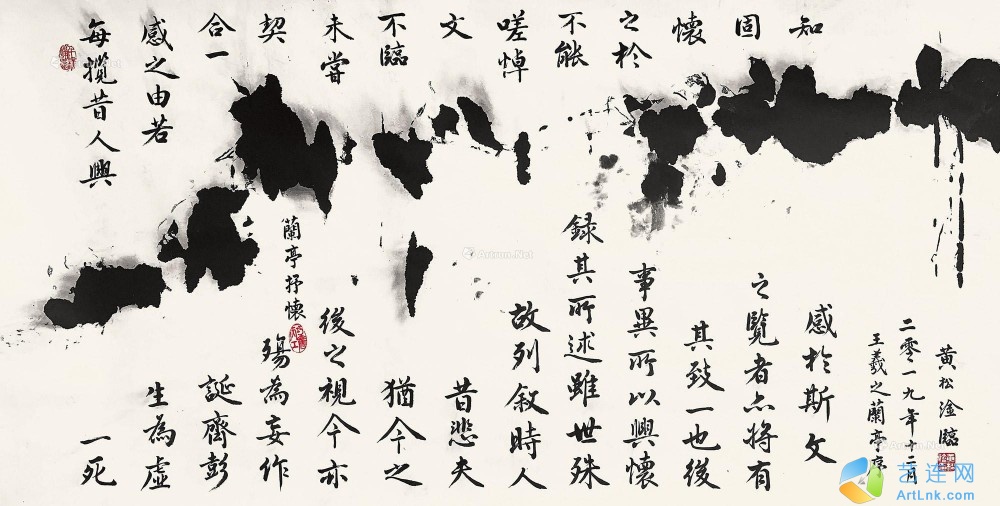 每攬昔人興
感之由若
合一
契
未嘗
不臨
文
嗟悼
不能
之於
懷
固
知
一死
生為虛
誕齊彭
殤為妄作
後之視今亦
猶今之
昔悲夫
故列敘時人
録其所述雖世殊
事異所以興懷
其致一也後
之覽者亦將有
感於斯文
蘭亭抒懷
王羲之蘭亭序
二零一九年十二月
黃松淦臨
Artron.Net
艺连网
ArtLnk.com